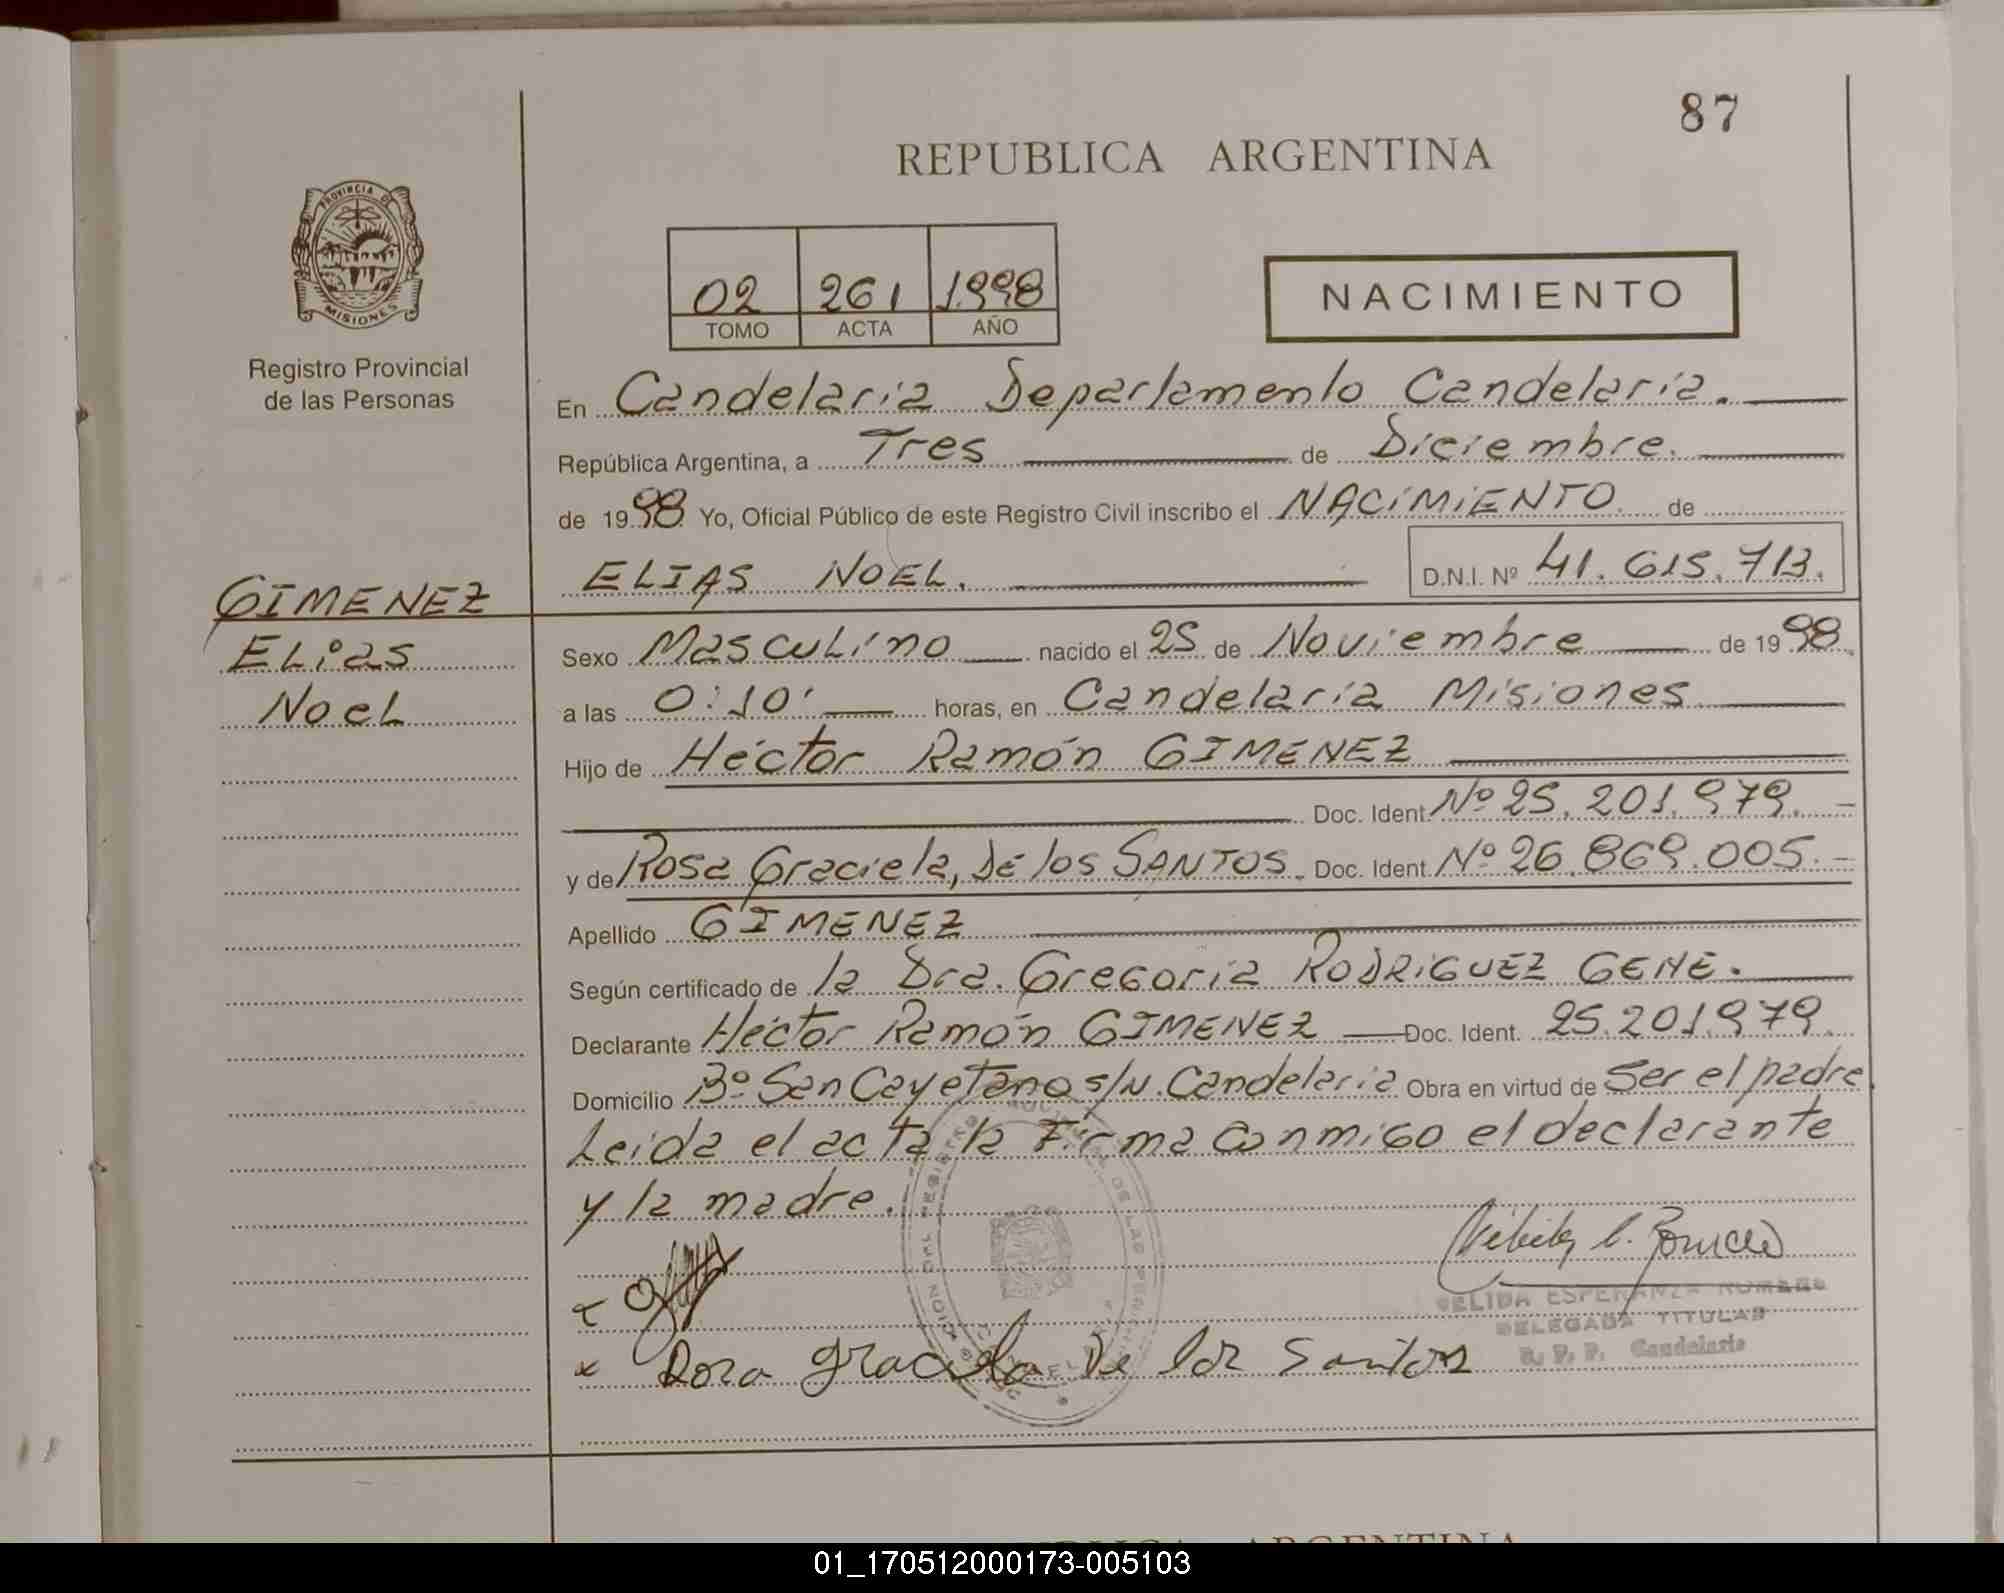 87
REPUBLICA ARGENTINA
PROVINCIA DE
MISIONES
Registro Provincial
de las Personas
02 261 1998
TOMO ACTA AÑO
NACIMIENTO
En Candelaria Departamento Candelaria.
República Argentina, a Tres de Diciembre.
de 1998 Yo, Oficial Público de este Registro Civil inscribo el NACIMIENTO de
ELIAS NOEL. D.N.I. Nº 41.615.713.
GIMENEZ
Elias
Noel
Sexo Masculino nacido el 25 de Noviembre de 1998
a las 0:10' horas, en Candelaria Misiones
Hijo de Héctor Ramón GIMENEZ
Doc. Ident. Nº 25.201.979.-
y de Rosa Graciela, De los SANTOS. Doc. Ident. Nº 26.869.005.-
Apellido GIMENEZ
Según certificado de la Dra. Gregoria RODRIGUEZ GENE.
Declarante Héctor Ramón GIMENEZ Doc. Ident. 25.201.979.
Domicilio Bº San Cayetano s/N. Candelaria Obra en virtud de Ser el padre.
Leida el acta la Firma conmigo el declarante
y la madre.
ESPERANZA ROMERO
DELEGADA TITULAR
R. P. P. Candelaria
x Rosa Graciela De los Santos
REPUBLICA ARGENTINA
01_170512000173-005103